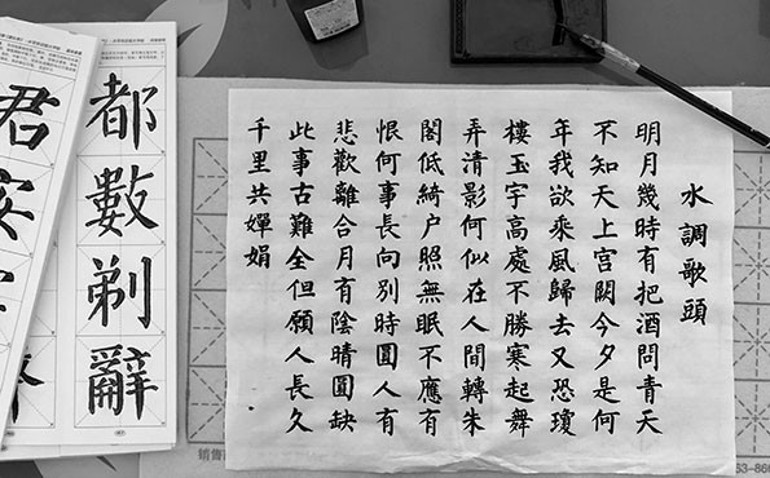 水調歌頭
明月幾時有把酒問青天
不知天上宫闕今夕是何
年我欲乘風歸去又恐瓊
樓玉宇高處不勝寒起舞
弄清影何似在人間轉朱
閣低綺户照無眠不應有
恨何事長向別時圓人有
悲歡離合月有陰晴圓缺
此事古難全但願人長久
千里共嬋娟
都數剃辭
君安
销售